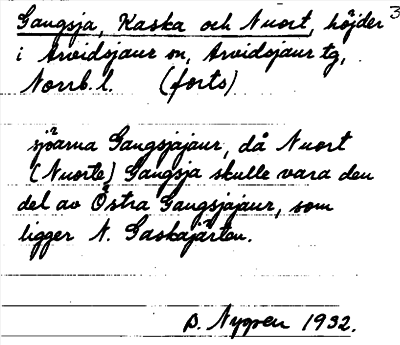 Gangsja, Kaska och Nuort, höjder 3
i Arvidsjaur sn, Arvidsjaur tg,
Norrb. l. (forts)
sjöarna Gangsjajaur, då Nuort
(Nuorte) Gangsja skulle vara den
del av Östra Gangsjajaur, som
ligger N. Gaskajärten.
D. Nygren 1932.